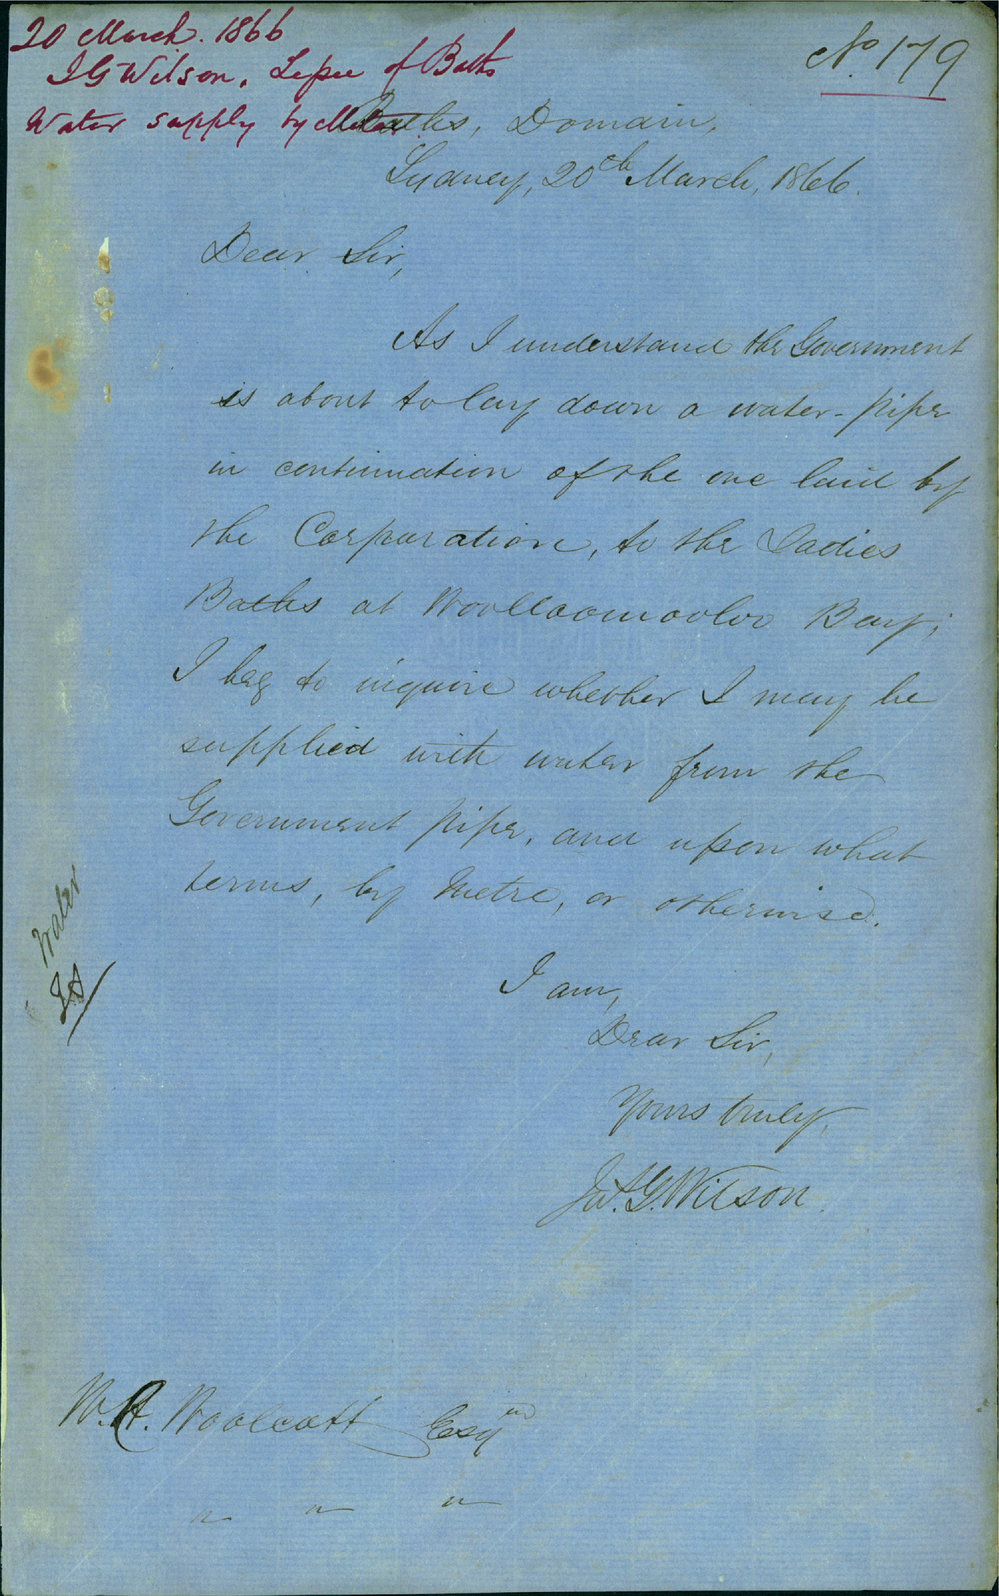 20 March. 1866
J G Wilson, Lessee of Baths
Water supply by Meter
No. 179
Baths, Domain,
Sydney, 20th March, 1866.
Dear Sir,
As I understand the Government
is about to lay down a water-pipe
in continuation of the one laid by
the Corporation, to the Ladies
Baths at Woolloomooloo Bay;
I beg to inquire whether I may be
supplied with water from the
Government pipe, and upon what
terms, by Metre, or otherwise.
I am,
Dear Sir,
Yours truly,
Jas. G. Wilson.
Water
W. A. Woolcott Esqre
" " "